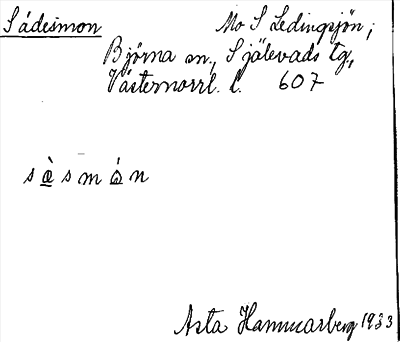 Sådesmon Mo S Ledingsjön;
Björna sn, Själevads tg,
Västernorrl. l. 607
s æ̀ s m ǻ n
Asta Hammarberg 1933